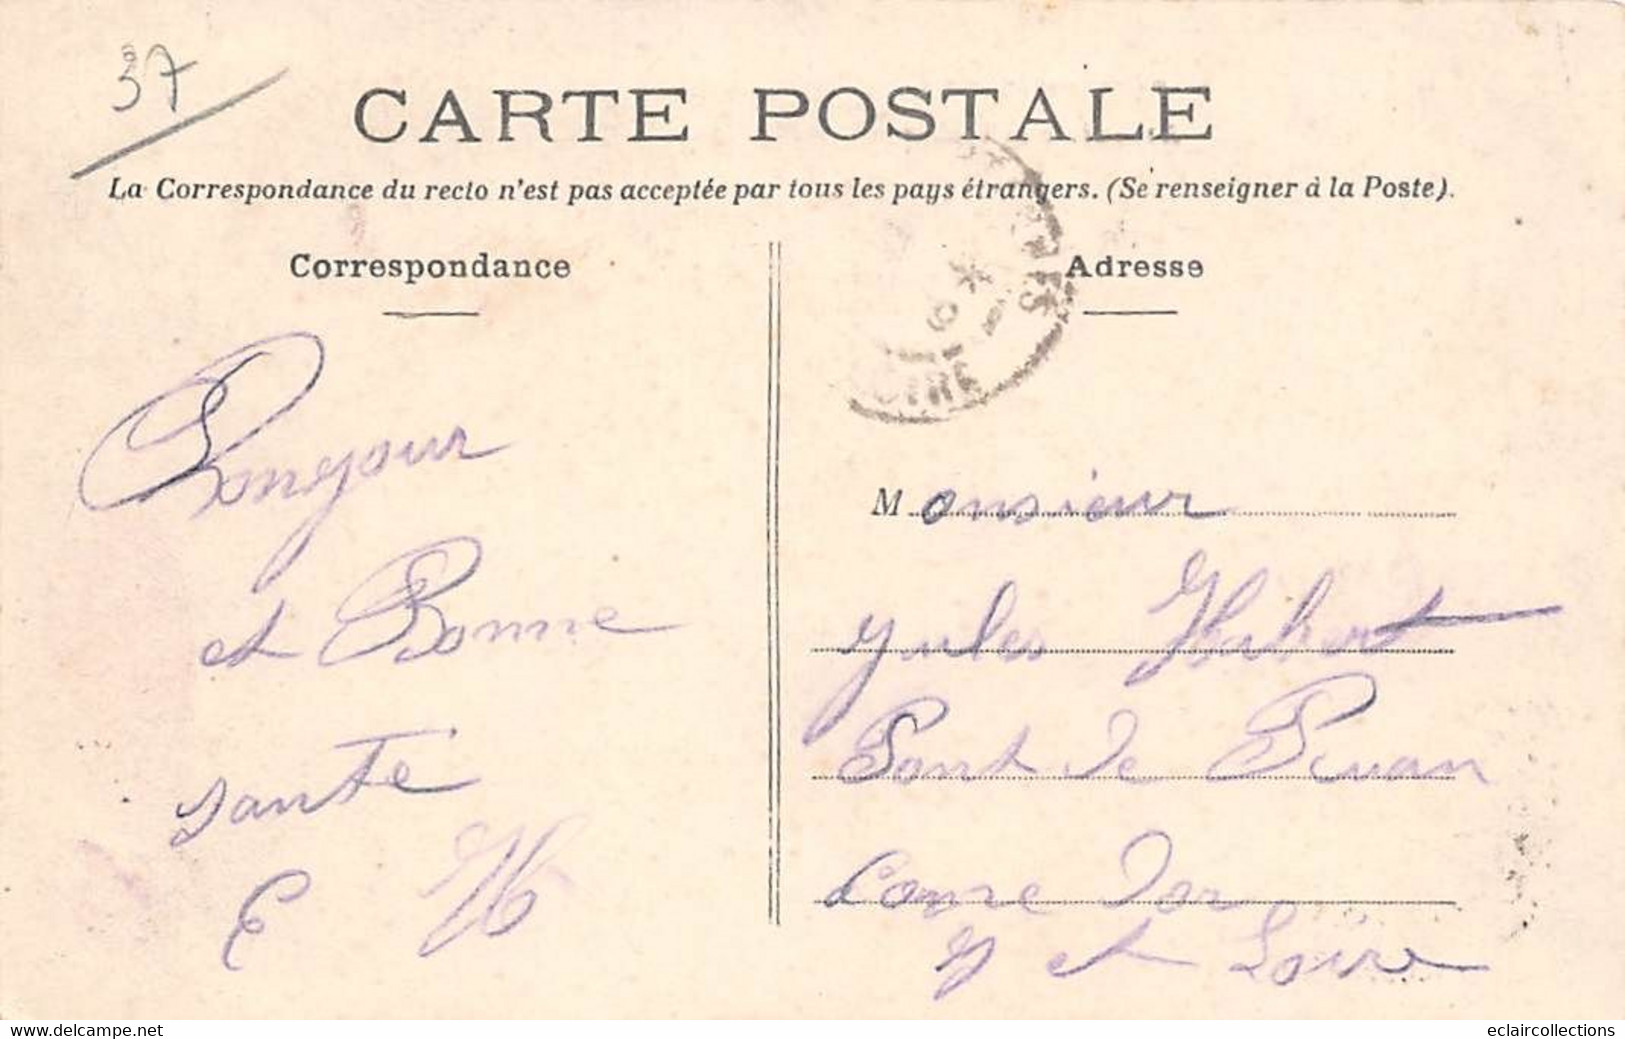 37
CARTE POSTALE
La Correspondance du recto n'est pas acceptée par tous les pays étrangers. (Se renseigner à la Poste).
Correspondance
Bonjour
et Bonne
sante
E H
Adresse
Monsieur
Jules Hubert
Pont de Ruan
I et Loire
delcampe.net
eclaircollections